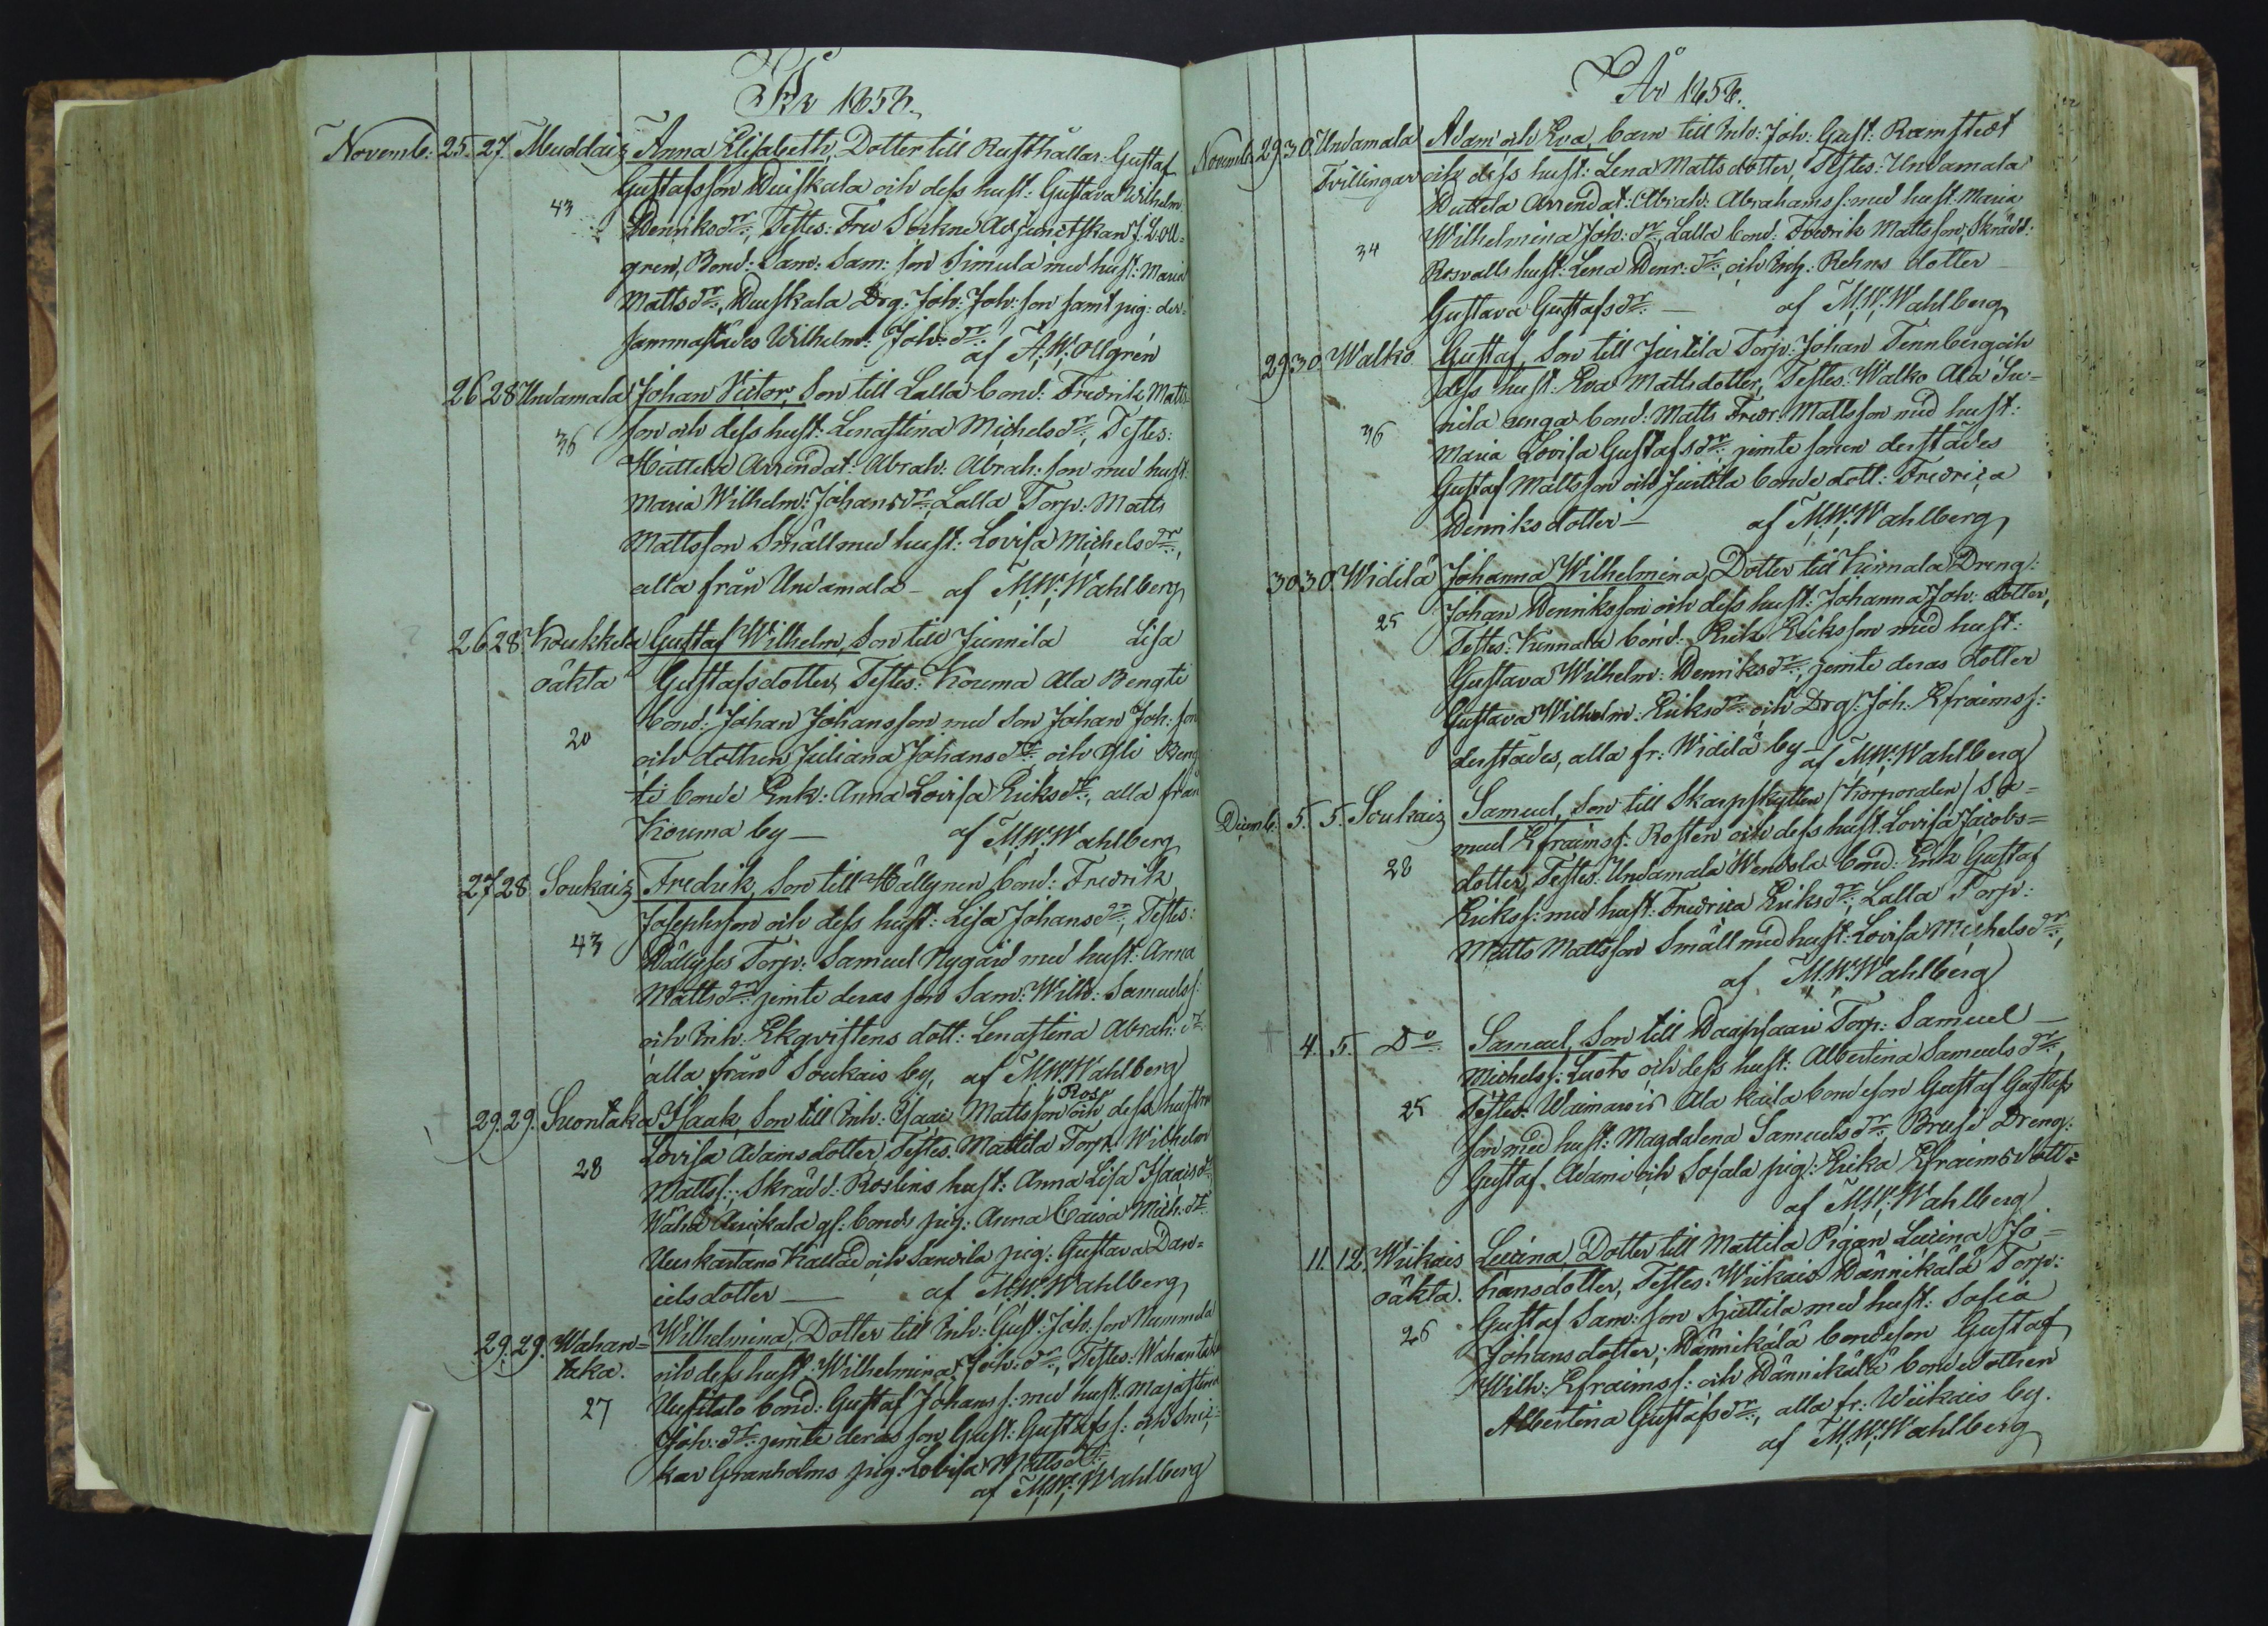 År 1858.
Novemb: 25. 27. Muddais Anna Elisabeth, Dotter till Rusthållar: Gustaf
Gustafsson Huiskala och dess hust: Gustava Wilhelm:
43 Henriksdr:, Testes: Fru Sockne Adjunctskan J. L. Oll=
gren, Bond: Sam: Sam: son Simula med hust: Maria
Mattsdr:, Huiskala Drg: Joh: Joh: son samt pig: der=
sammastädes Wilhelm: Joh: dr:
af A. W. Ollgrén
26 28 Undamala Johan Victor, Son till Lalla bond: Fredrik Matts=
36 son och dess hust: Lenastina Michelsdr:, Testes:
Huttela Arrendat: Abrah: Abrah: son med hust:
Maria Wilhelm: Johansdr:, Lalla Torp: Matts
Mattsson Småll med hust: Lovisa Michelsdr:,
alla från Undamala — af M. W. Wahlberg
26 28 Koukkela Gustaf Wilhelm, Son till Junnila Lisa
oäkta Gustafsdotter, Testes: Kouma Ala Bengti
bond: Johan Johansson med son Johan Joh: son
20 och dottren Juliana Johansdr: och Yli Beng
ti bonde Enk: Anna Lovisa Eriksdr:, alla från
Kouma by — af M. W. Wahlberg
27 28 Soukais Fredrik, Son till Hällynen bond: Fredrik
Josephsson och dess hust: Lisa Johansdr:, Testes:
43 Torp: Samuel Nygård med hust: Anna
Mattsdr: jemte deras son Sam: Wilh: Samuelss:
och Inh: Ekqvistens dott: Lenastina Abrah: dr:
alla från Soukais by, af M. W. Wahlberg
Ros
29. 29. Suontaka Isaak, Son till Inh: Isaac Mattsson och dess hustru
Lovisa Adamsdotter, Testes: Mattila Torp: Wilhelm
28 Mattss:, Skrädd: Roslins hust: Anna Lisa Isaacsdr:
Wähä Anikala gf: bonds pig: Anna Caisa Mich: dr:
Uuskartano Kallad och Sandila pig: Gustava Dan=
ielsdotter — af M. W. Wahlberg
29. 29. Wahan= Wilhelmina, Dotter till Inh: Gust: Joh: son Nummela
taka. och dess hust: Wilhelmina Joh: dr:, Testes: Wahantaka
27 Uusitalo bond: Gustaf Johanss: med hust: Majastina
Joh: dr: jemte deras son Gust: Gustafss: och Snic=
kar Granholms pig: Lovisa Mattsdr:
af M. W. Wahlberg
År 1858.
Novemb: 29 30. Undamala Adam och Eva, barn till Inh: Joh: Gust: Ramstedt
Tvillingar och dess hust: Lena Mattsdotter, Testes: Undamala
Huttela Arrendat: Abrah: Abrahamss: med hust: Maria
34 Wilhelmina Joh: dr:, Lalla bond: Fredrik Mattsson, Skrädd:
Rosvalls hust: Lena Henr: dr:, och Inh: Rehns dotter
Gustava Gustafsdr: — af M. W. Wahlberg
29 30 Walko Gustaf, Son till Juttila Torp: Johan Tennberg och
dess hust: Eva Mattsdotter, Testes: Walko Ala Su=
nila unga bond: Matts Fredr: Mattsson med hust:
36 Maria Lovisa Gustafsdr:, jemte sonen derstädes
Gustaf Mattsson och Juttila bonde dott: Fredrica
Henriksdotter — af M. W. Wahlberg
30 30. Widilä Johanna Wilhelmina, Dotter till Kunnala Dreng:
25 Johan Henriksson och dess hust: Johanna Joh: dotter,
Testes: Kunnala bond: Erik Eriksson med hust:
Gustava Wilhelm: Henriksdr:, jemte deras dotter
Gustava Wilhelm: Eriksdr: och Drg: Joh: Efraimss:
derstädes, alla fr: Widilä by — af M. W. Wahlberg
Decemb: 5. 5. Soukais Samuel, Son till Skarpskytten (Korporalen) Sa=
muel Efraimss: Rosten och dess hust: Lovisa Jacobs=
28 dotter, Testes: Undamala Wendola bond: Erik Gustaf
Erikss: med hust: Fredrica Eriksdr:, Lalla Torp:
Matts Mattsson Småll med hust: Lovisa Michelsdr:,
af M. W. Wahlberg
4. 5. Do: Samuel, Son till Haapsaari Torp: Samuel
Michelss: Luoto och dess hust: Albertina Samuelsdr:,
25 Testes: Waimaris Ala kaila bondeson Gustaf Gustafs
son med hust: Magdalena Samuelsdr:, Brusi Dreng:
Gustaf Adami och Sojala pig: Erika Efraimsdott:
af M. W. Wahlberg
11. 12. Wiikais Lucina, Dotter till Mattila Pigan Lucina Jo=
oäkta. hansdotter, Testes: Wiikais Hännikälä Torp:
26 Gustaf Sam: son Hjuttila med hust: Sofia
Johansdotter, Hännikälä bondeson Gustaf
Wilh: Efraimss: och Hännikälä bondedottren
Albertina Gustafsdr:, alla fr: Wiikais by.
af M. W. Wahlberg